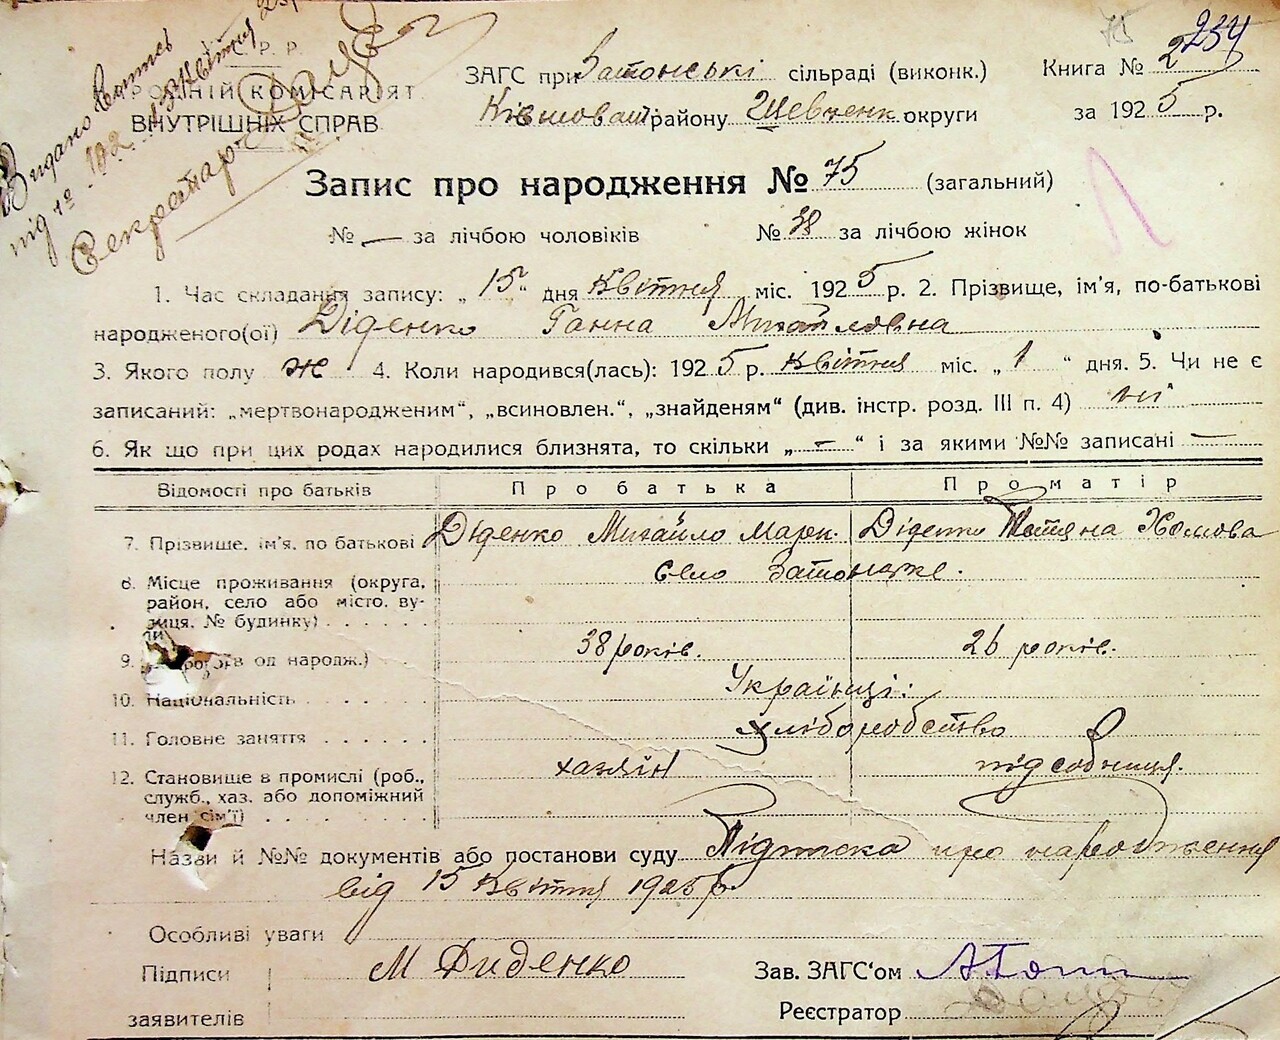 Видано Витяг
під № 102 15 Квітня 25
Секретар
75
234
С. Р. Р.
РОДНІЙ КОМІСАРІЯТ
ВНУТРІШНІХ СПРАВ
ЗАГС при Затонські сільраді (виконк.)
Книга № 2
району Шевченк округи
за 1925 р.
Запис про народження № 75 (загальний)
№ — за лічбою чоловіків
№ 38 за лічбою жінок
1. Час складання запису: „15“ дня Квітня міс. 1925 р. 2. Прізвище, ім'я, по-батькові
народженого(ої) Діденко Ганна Михайловна
3. Якого полу ж 4. Коли народився(лась): 1925 р. Квітня міс. „1“ дня. 5. Чи не є
записаний: „мертвонародженим“, „всиновлен.“, „знайденям“ (див. інстр. розд. III п. 4) ні
6. Як що при цих родах народилися близнята, то скільки „—“ і за якими №№ записані —
Відомості про батьків
Про батька
Про матір
7. Прізвище, ім'я, по батькові
Діденко Михайло Марк.
Діденко Тетяна Хомова
8. Місце проживання (округа,
район, село або місто, вулиця, № будинку)
село Затонське.
9. од народж.)
38 років.
26 років.
10. Національність
Українці:
11. Головне заняття
хліборобство
12. Становище в промислі (роб.,
служб., хаз. або допоміжний
член сім'ї)
хазяін
підсобниця.
Назви й №№ документів або постанови суду Підписка про народження
від 15 Квітня 1925 р.
Особливі уваги
Підписи
заявителів
М Диденко
Зав. ЗАГС'ом
Реєстратор